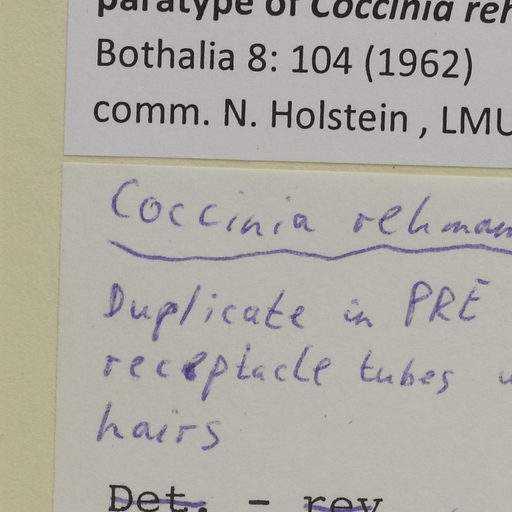 paratype of Coccinia reh
Bothalia 8: 104 (1962)
comm. N. Holstein , LMU
Coccinia rehman
Duplicate in PRE
receptacle tubes
hairs
Det. - rev